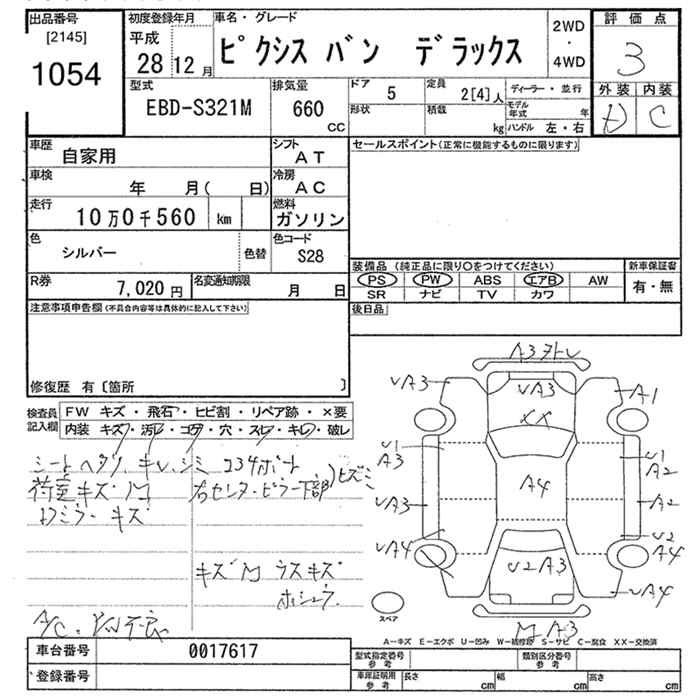 出品番号
[2145]
1054
初度登録年月
平成
28 12 月
車名・グレード
ピクシス バン デラックス
2WD
・
4WD
評価点
3
外装 内装
D C
型式
EBD-S321M
排気量
660
CC
ドア 5
定員 2[4]人
形状
積載 kg
ディーラー・並行
モデル年式 年
ハンドル 左・右
車歴
自家用
シフト
AT
車検
年 月( 日)
冷房
AC
走行
10万0千560 km
燃料
ガソリン
色
シルバー
色替
色コード
S28
R券
7,020 円
名変通知期限
月 日
セールスポイント(正常に機能するものに限ります)
装備品 (純正品に限り○をつけてください)
新車保証書
PS PW ABS エアB AW
有・無
SR ナビ TV カワ
後日品
注意事項申告欄(不具合内容等は具体的に記入して下さい)
修復歴 有〔箇所 〕
検査員記入欄
FW キズ・飛石・ヒビ割・リペア跡・×要
内装 キズ・汚レ・コゲ・穴・スレ・キレ・破レ
シートヘタリ、キレ、シミ
荷室キズ凹
ミラーキズ
右センターピラー下部
ヒズミ
キズ凹 ウスキズ
A/C
不良
A3
UA3
UA3
XX
A1
U1
A3
U1
A2
A4
UA3
A2
UA4
U2
A4
U2A3
UA4
A3
スペア
A−キズ E−エクボ U−凹み W−補修跡 S−サビ C−腐食 XX−交換済
車台番号
0017617
登録番号
型式指定番号
参考
類別区分番号
参考
車庫証明用
参考
長さ cm
幅 cm
高さ cm